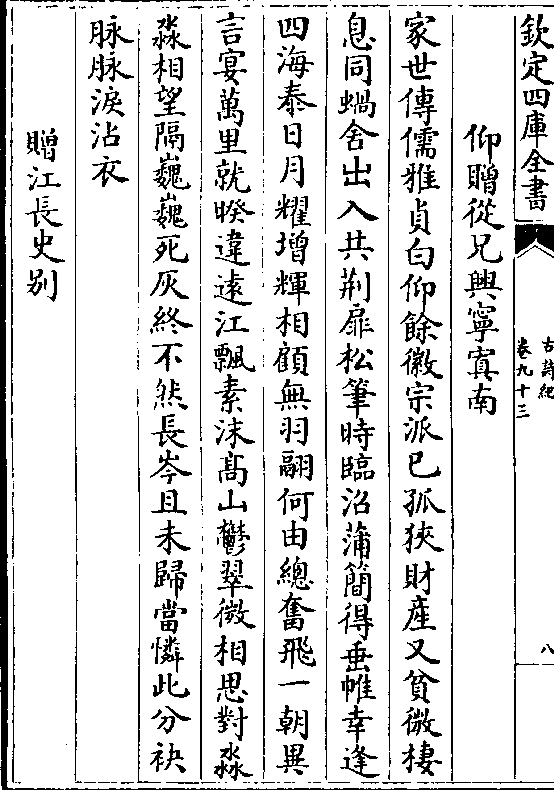 欽定四庫全書
古詩紀
卷九十三
八
仰贈從兄興寧寘南
家世傳儒雅貞白仰餘徽宗派已孤狹財產又貧微棲
息同蝸舍出入共荆扉松筆時臨沼蒲簡得垂帷幸逢
四海泰日月耀增輝相顧無羽翮何由總奮飛一朝異
言宴萬里就暌違逺江飄素沫髙山鬱翠微相思對淼
淼相望隔巍巍死灰終不然長岑且未歸當憐此分袂
脉脉淚沾衣
贈江長史别